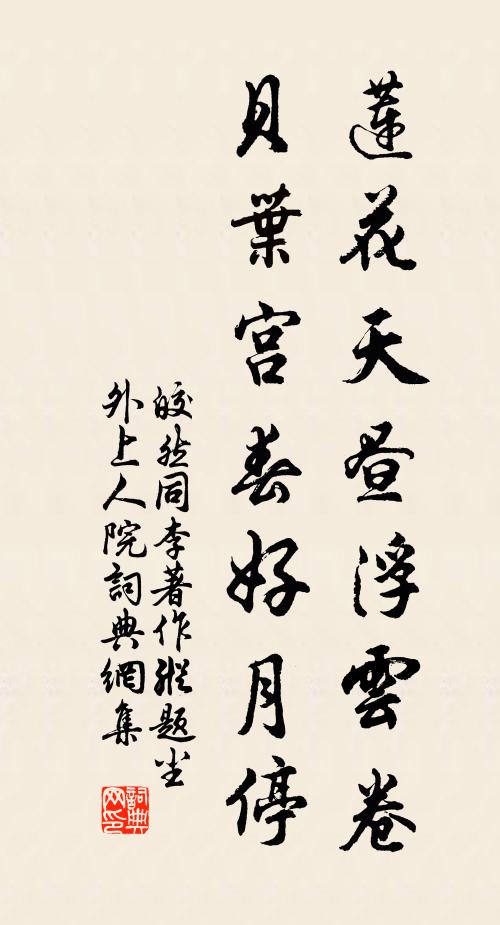 蓮花天晝浮雲卷
貝葉宮春好月停
皎然同李著作縱題塵
外上人院詞典網集
詞典網印